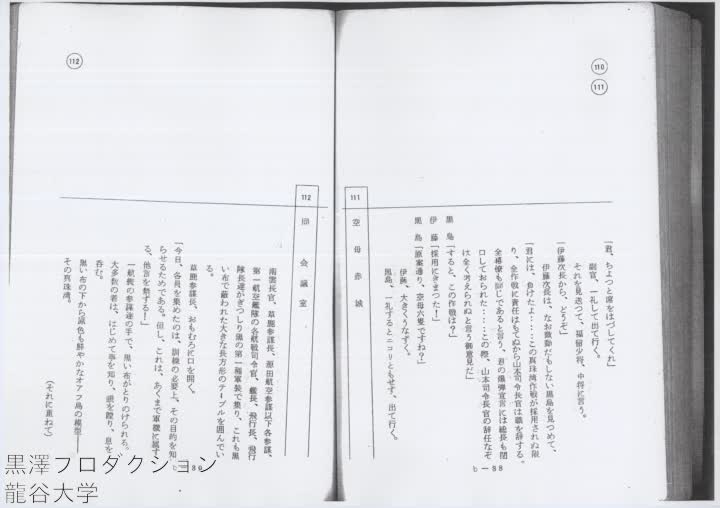 110
111
「君、ちょっと席をはづしてくれ」
副官、一礼して出て行く。
それを見送って、福留少将、中将に言う。
「伊藤次長から、どうぞ」
伊藤次長は、なお微動だもしない黒島を見つめて、
「君には、負けたよ‥‥‥この真珠湾作戦が採用されぬ限
り、全作戦に責任はもてぬから山本司令長官は職を辞する。
全幕僚も同じであると言う、君の爆弾宣言には総長も閉
口しておられた‥‥‥この際、山本司令長官の辞任なぞ
は全く考えられぬと言う御意見だ」
黒島「すると、この作戦は？」
伊藤「採用にきまつた！」
黒島「原案通り、空母六隻ですね？」
伊藤、大きくうなずく。
黒島、一礼するとニコリともせず、出て行く。
111 空母赤城
b－88
112
112 同 会議室
南雲長官、草鹿参謀長、源田航空参謀以下各参謀、
第一航空艦隊の各航戦司令官、艦長、飛行長、飛行
隊長達がぎつしり黒の第一種軍装で集り、これも黒
い布で蔽われた大きな長方形のテーブルを囲んでい
る。
草鹿参謀長、おもむろに口を開く。
「今日、各員を集めたのは、訓練の必要上、その目的を知
らせるためである。但し、これは、あくまで軍機に属す
る、他言を禁ずる！」
一航艦の参謀達の手で、黒い布がとりのけられる。
大多数の者は、はじめて事を知り、頭を蹴り、息を
呑む。
黒い布の下から原色も鮮やかなオアフ島の模型――
その真珠湾。
（それに重ねて）
b－89
黒澤プロダクション
龍谷大学